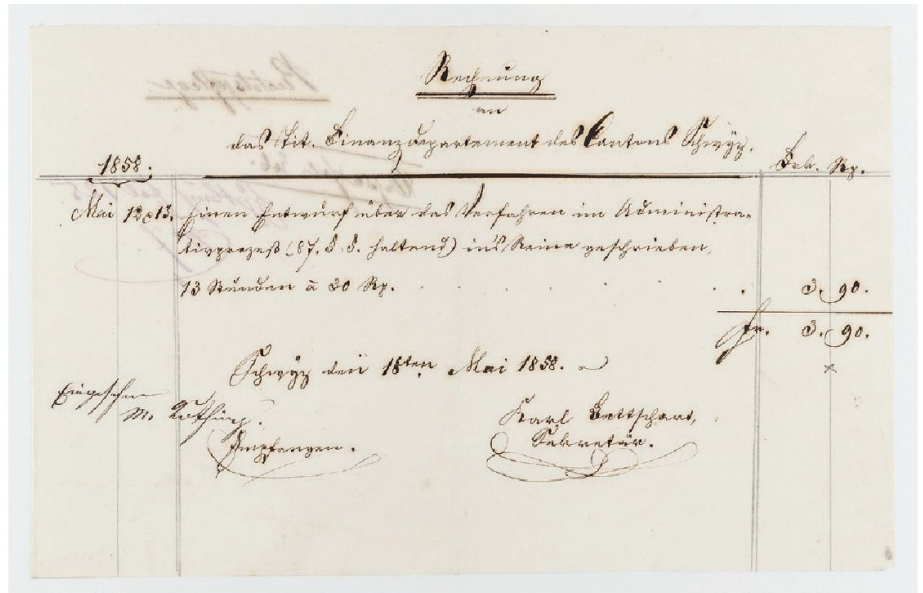 Rechnung
an
das Tit. Finanzdepartement des Cantons Schwyz.
1858. Frk. Rp.
Mai 12 & 13. Einen Entwurf über das Verfahren im Administra-
tivprozeß (87. §§. haltend) in's Reine geschrieben,
13 Stunden à 30 Rp. . . . . . . . 3. 90.
Fr. 3. 90.
Schwyz den 18ten Mai 1858.
Eingesehen
M. Kothing. Karl Bettschart,
Empfangen. Sekretär.